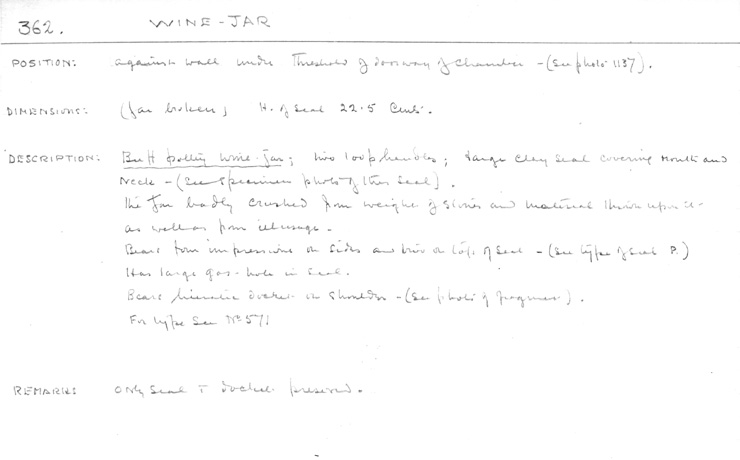 362. WINE-JAR
POSITION: against wall under Threshold of doorway of Chamber - (See photo 1137).
DIMENSIONS: (Jar broken) H. of Seal 22.5 Cms.
DESCRIPTION: Buff pottery wine-jar; two loop handles; large clay seal covering mouth and
neck - (See specimen photo of this seal).
The Jar badly crushed from weight of stones and material thrown upon it
as well as from ill usage.
Bears four impressions on sides and two on top of seal - (See type of seal P.)
Has large gas-hole in seal.
Bears hieratic docket on shoulder - (See photo of fragment).
For type see No 571
REMARKS: Only Seal + docket preserved.